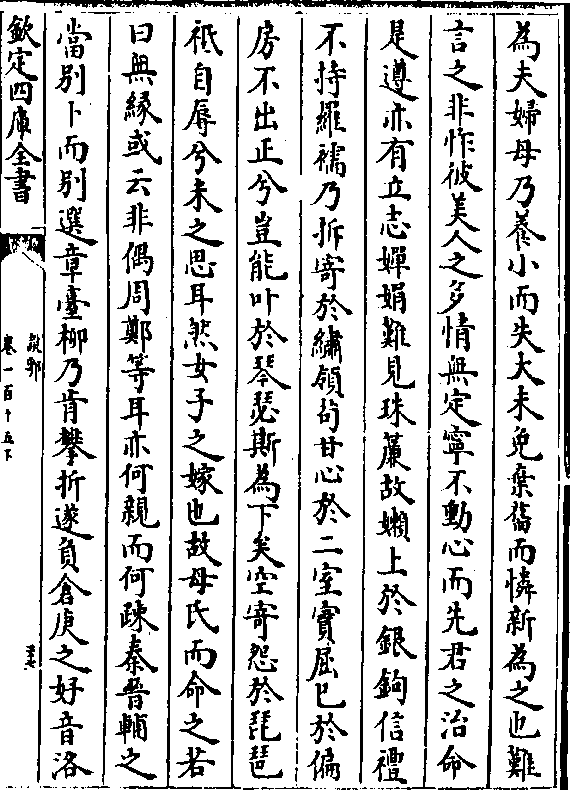 為夫婦毋乃養小而失大未免棄舊而憐新為之也難
言之非怍彼美人之多情無定寧不動心而先君之治命
是遵亦有立志嬋娟難見珠簾故嬾上於銀鉤信禮
不持羅襦乃拆寄於繡領茍甘心於二室實屈已於偏
房不出正兮豈能叶於琴瑟斯為下矣空寄怨於琵琶
祗自辱兮未之思耳然女子之嫁也故母氏而命之若
曰無緣或云非偶周鄭等耳亦何親而何疎秦晉輔之
當別卜而別選章臺柳乃肯攀折遂負倉庚之好音洛
欽定四庫全書
說郛
卷一百十五下